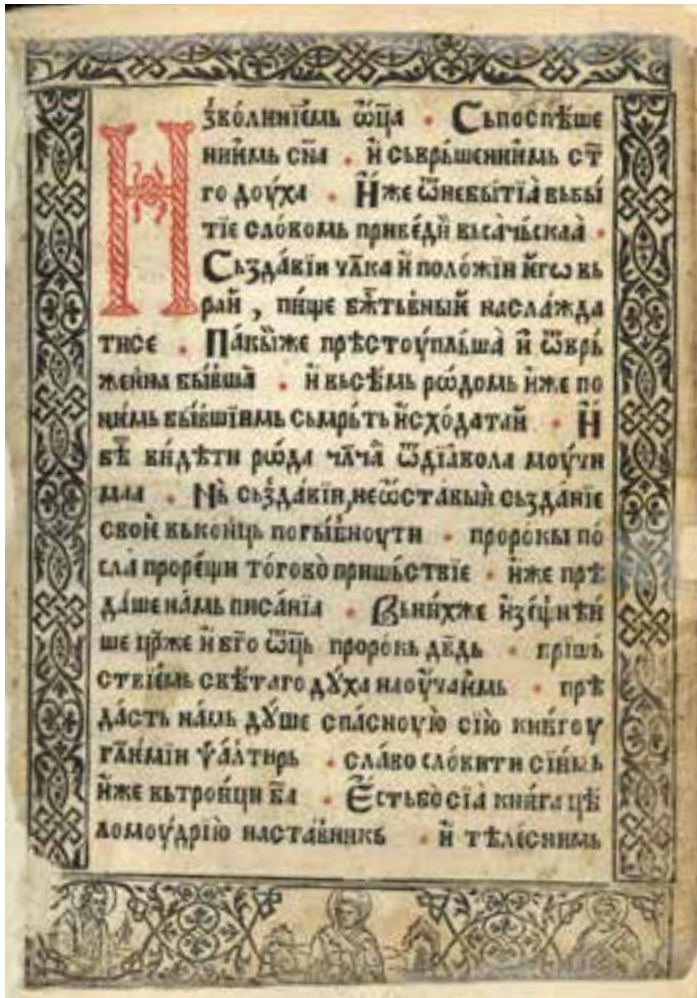 Изво́лнїе́мь ѿц҃а · Съпоспѣше
нїи́мь сн҃а · и҆ съврьше́нїи́мь ст҃
го доу́ха · И҆́же ѿнебытїа̀ вьбы́
тїе сло́вомь приве́дїи вьса́чьскаа ·
Сьзда́вїи чл҃ка и҆ поло́жїи и҆́гѡ вь
раи̑ , пи́ще бж҃тьвныи наслажда
тисе · Па́кыже прѣстоупль́ша и҆ ѿврь
же́нна бы́вша̀ · и҆ вьсѣ́мь рѡ́домь и҆́же по
ни́мь бы́вшїимь съмрь́ть и҆схо́датаи · И҆
бѣ̀ ви́дѣти рѡ́да чл҃ча ѿдїа́вола моучи
маа · Нь̀ сьзда́вїи, неѡста́выи сьзда́нїе
свое̑ вько́нць погы́бноути · проро́кы по́
сла̀ проре́щи то́гово̀ прише́ствїе · и҆же прѣ
да́ше на́мь писа́нїа · Вьни́хже
ше цр҃же и҆ бг҃о ѿц҃ь проро́кь дв҃дь · прїшь́
ствїе́мь свѣ́таго дꙋ́ха наоуча́имь · прѣ
да́сть на́мь дꙋ́ше спа́сноую̀ сїю̀ кни́гоу
гл҃и́мїи ѱа́лтирь · сла́во сло́вити си́мь
и҆́же вьтрои́ци ба҃ · Е҆́стьбо сїа̀ кни́га цѣ
ломоу́дрїю наста́вникь · и҆ тѣле́снимь